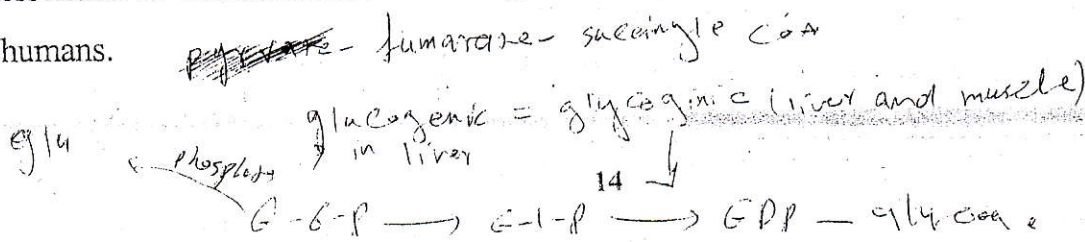 humans. pyruvate - fumarate - succingle CoA
glucogenic = glycoginic (liver and muscle)
glu phosphat in liver
14
G-6-P → G-1-P → GDP — glycog